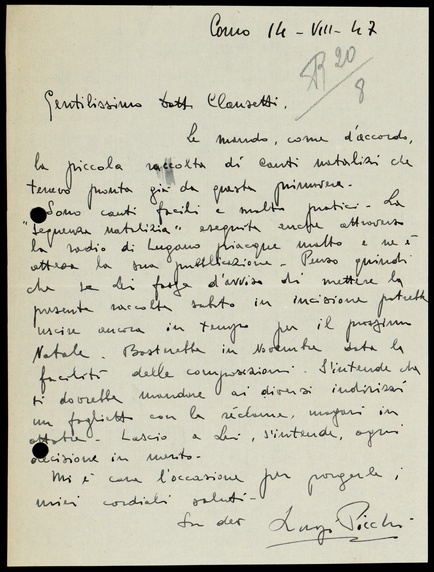 Como 14 - VIII - 47
SR 20
8
Gentilissimo Dott. Clausetti.
Le mando, come d'accordo,
la piccola raccolta di canti natalizi che
tenevo pronta già da questa primavera.
Sono canti facili e molto pratici - La
"Sequenza natalizia" eseguita anche attraverso
la radio di Lugano piacque molto e ne è
attesa la sua pubblicazione - Penso quindi
che se Lei fosse d'avviso di mettere la
presente raccolta subito in incisione potrebbe
uscire ancora in tempo per il prossimo
Natale. Basterebbe in Novembre data la
facilità delle composizioni. S'intende che
si dovrebbe mandare ai diversi indirizzi
un foglietto con la réclame, magari in
ottobre - Lascio a Lei, s'intende, ogni
decisione in merito.
Mi è cara l'occasione per porgerle i
miei cordiali saluti -
Suo dev
Luigi Picchi